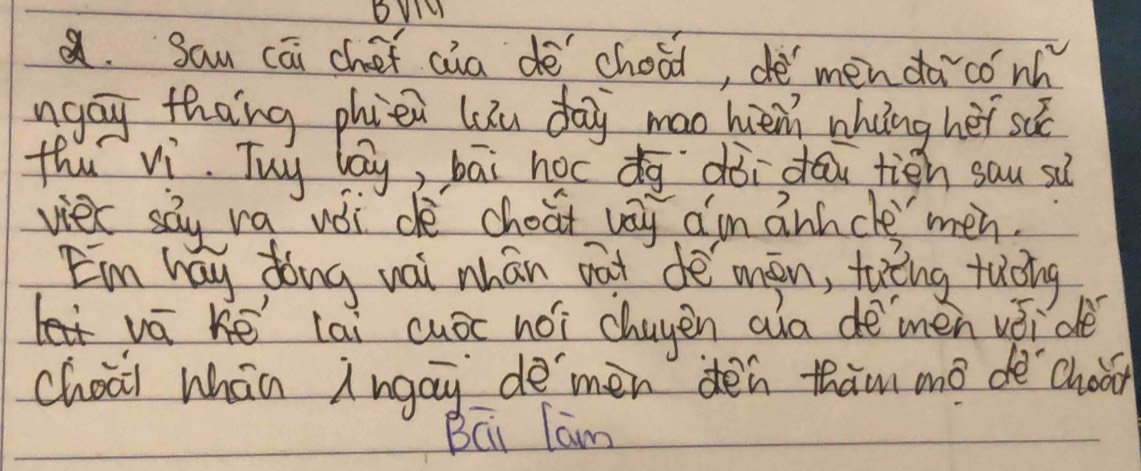 2. Sau cái chết của dế choắt, dế mèn đã có nh~
ngày tháng phiêu lưu đầy mạo hiểm nhưng hết sức
thú vị. Tuy vậy, bài học đg đời đầu tiên sau sự
việc sảy ra với dế choắt vẫy ám ảnh dế mèn.
Em hãy đóng vai nhân vật dế mèn, tưởng tượng
và kể lại cuộc nói chuyện của dế mèn với dế
choắt nhân 1 ngày dế mèn đến thăm mộ dế choắt
Bài làm